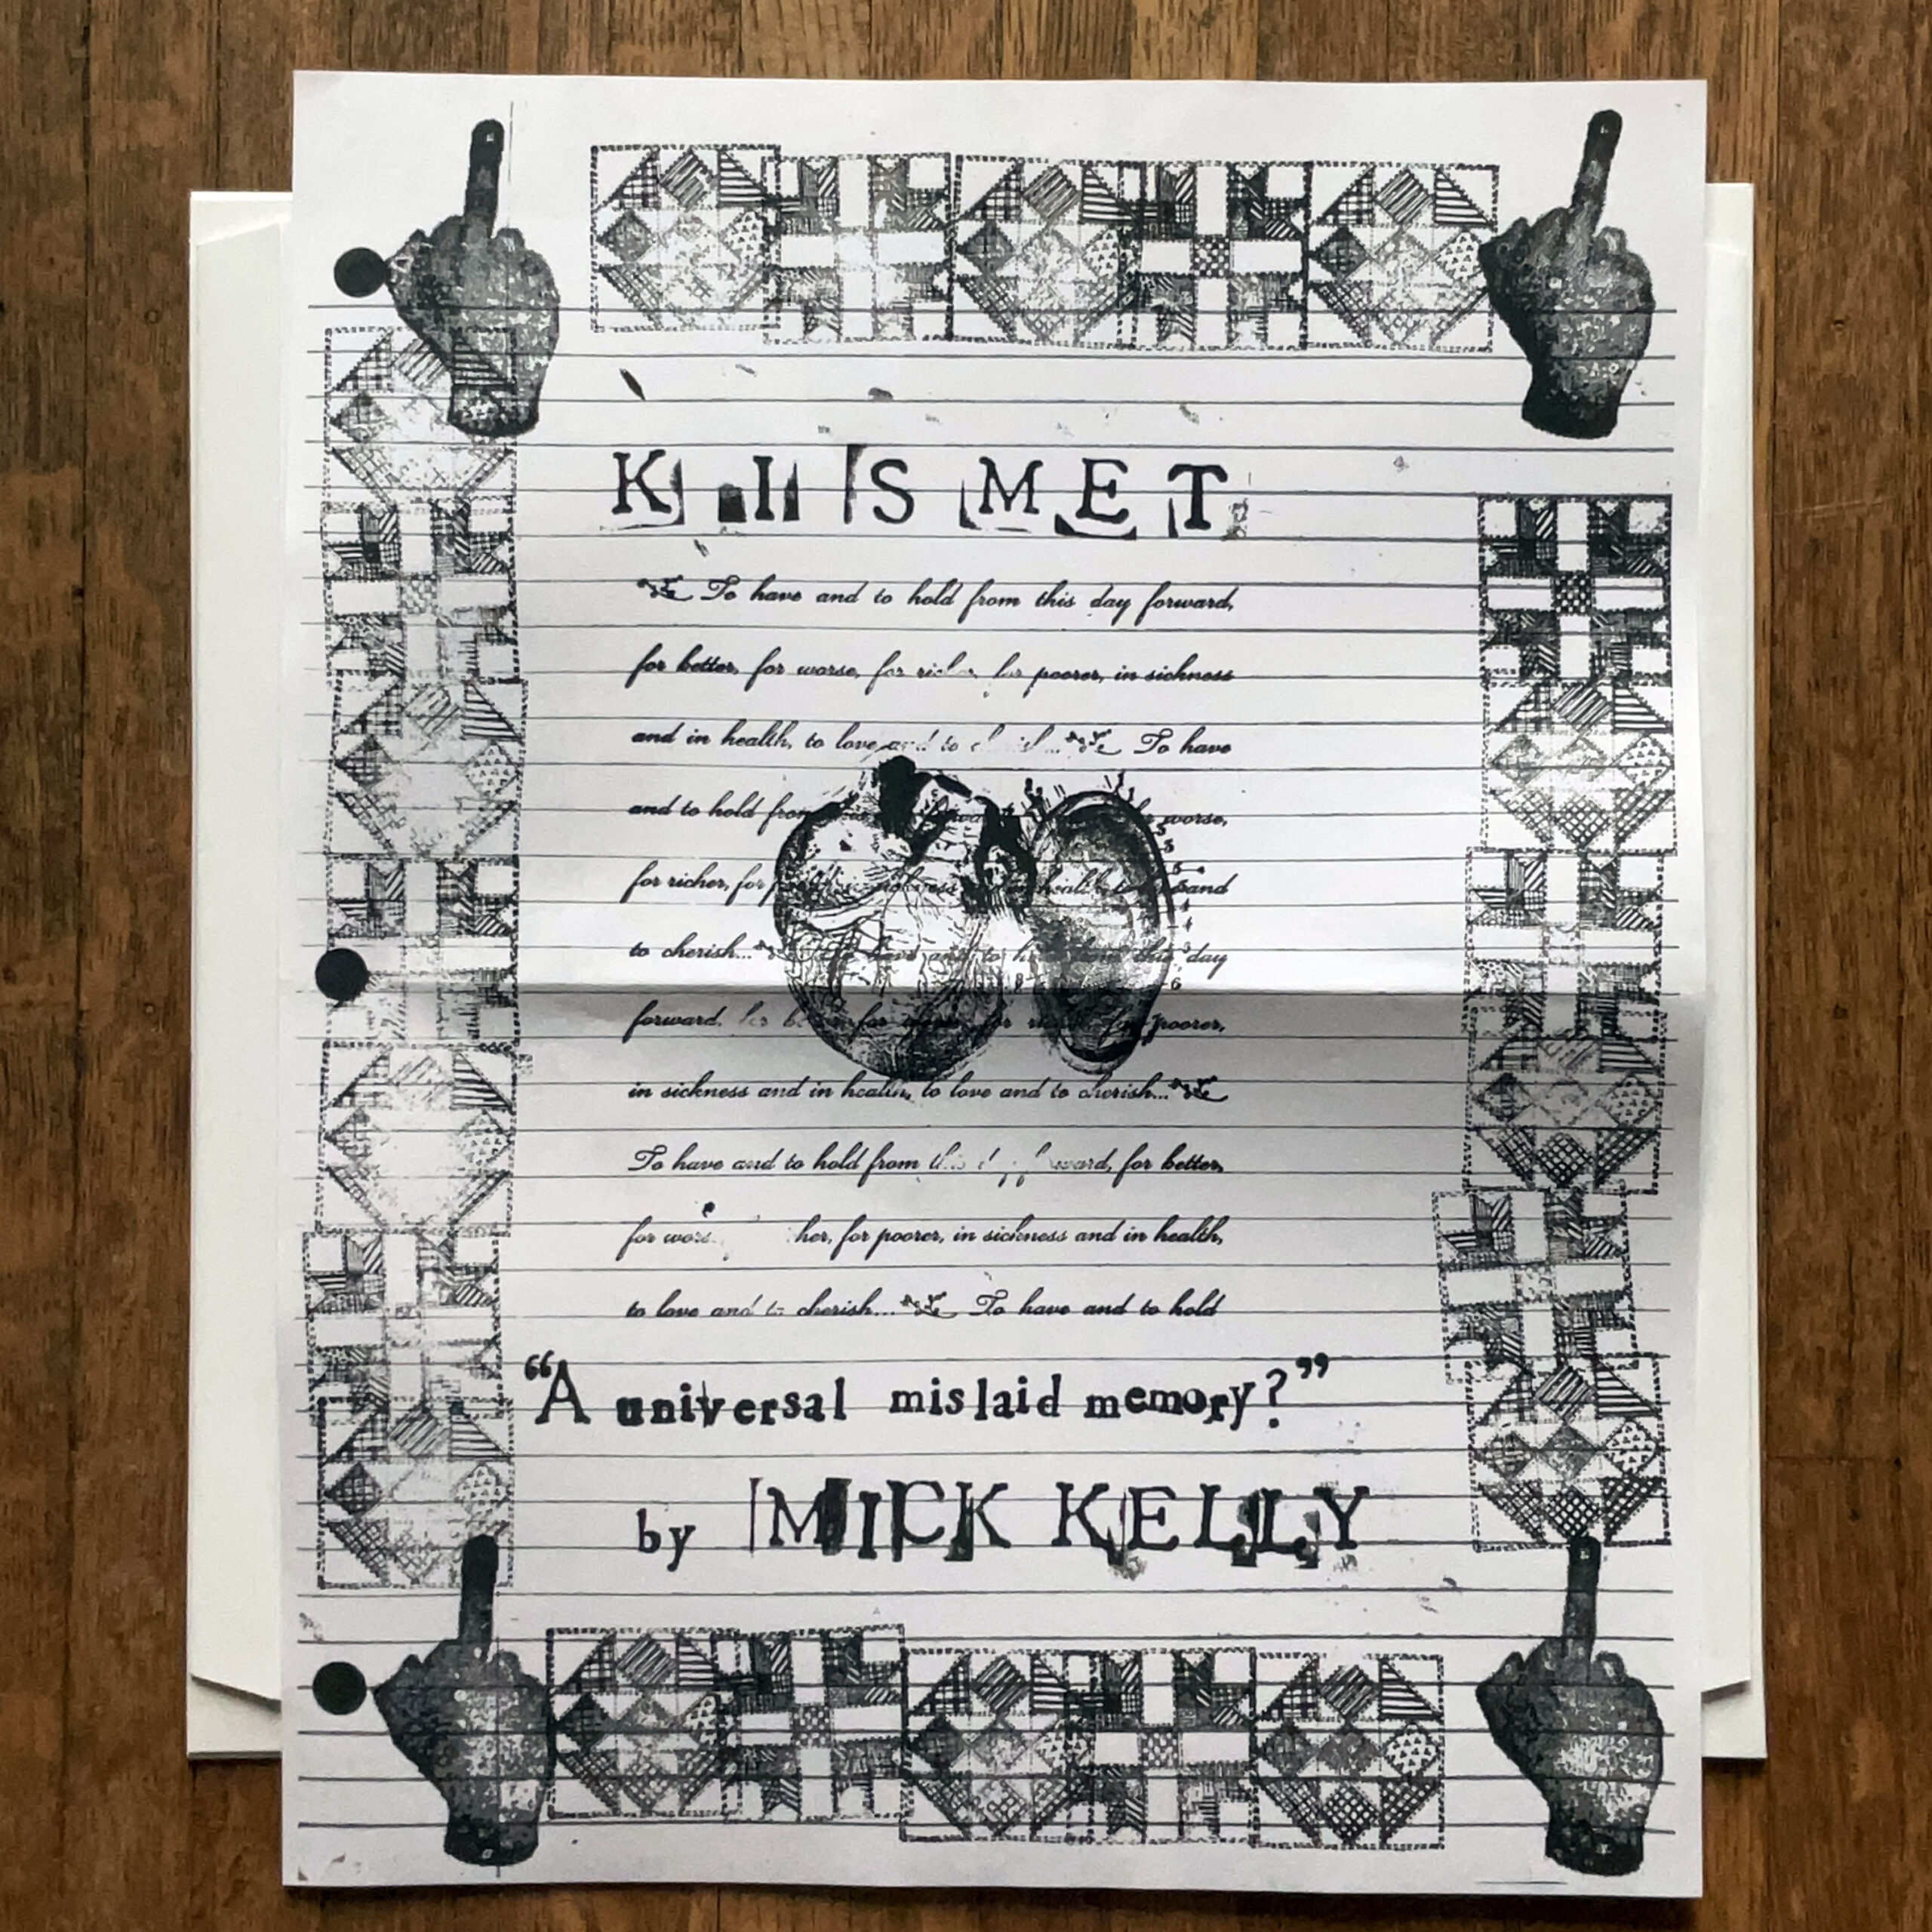 KISMET
To have and to hold from this day forward,
for better, for worse, for poorer, in sickness
and in health, to love and to To have
and to hold from worse,
for richer, for and
to cherish... this day
forward. poorer,
in sickness and in health, to love and to cherish...
To have and to hold from for better,
for for poorer, in sickness and in health,
to love and to cherish... To have and to hold
“A universal mislaid memory?”
by MICK KELLY